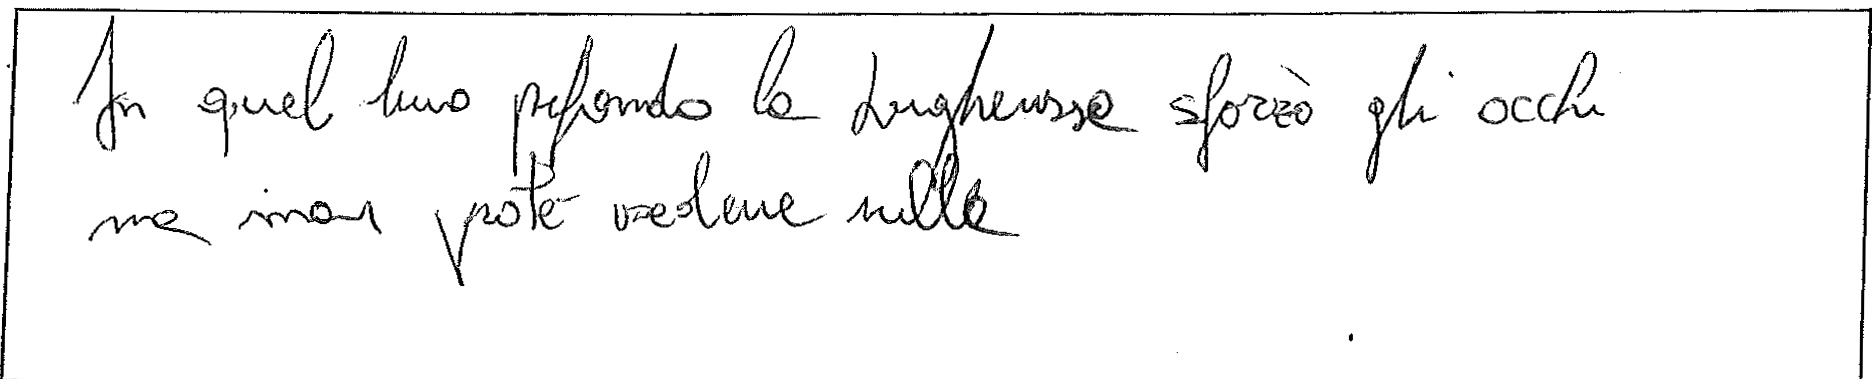 In quel buio profondo la tartarughessa sforzò gli occhi
ma non poté vedere nulla